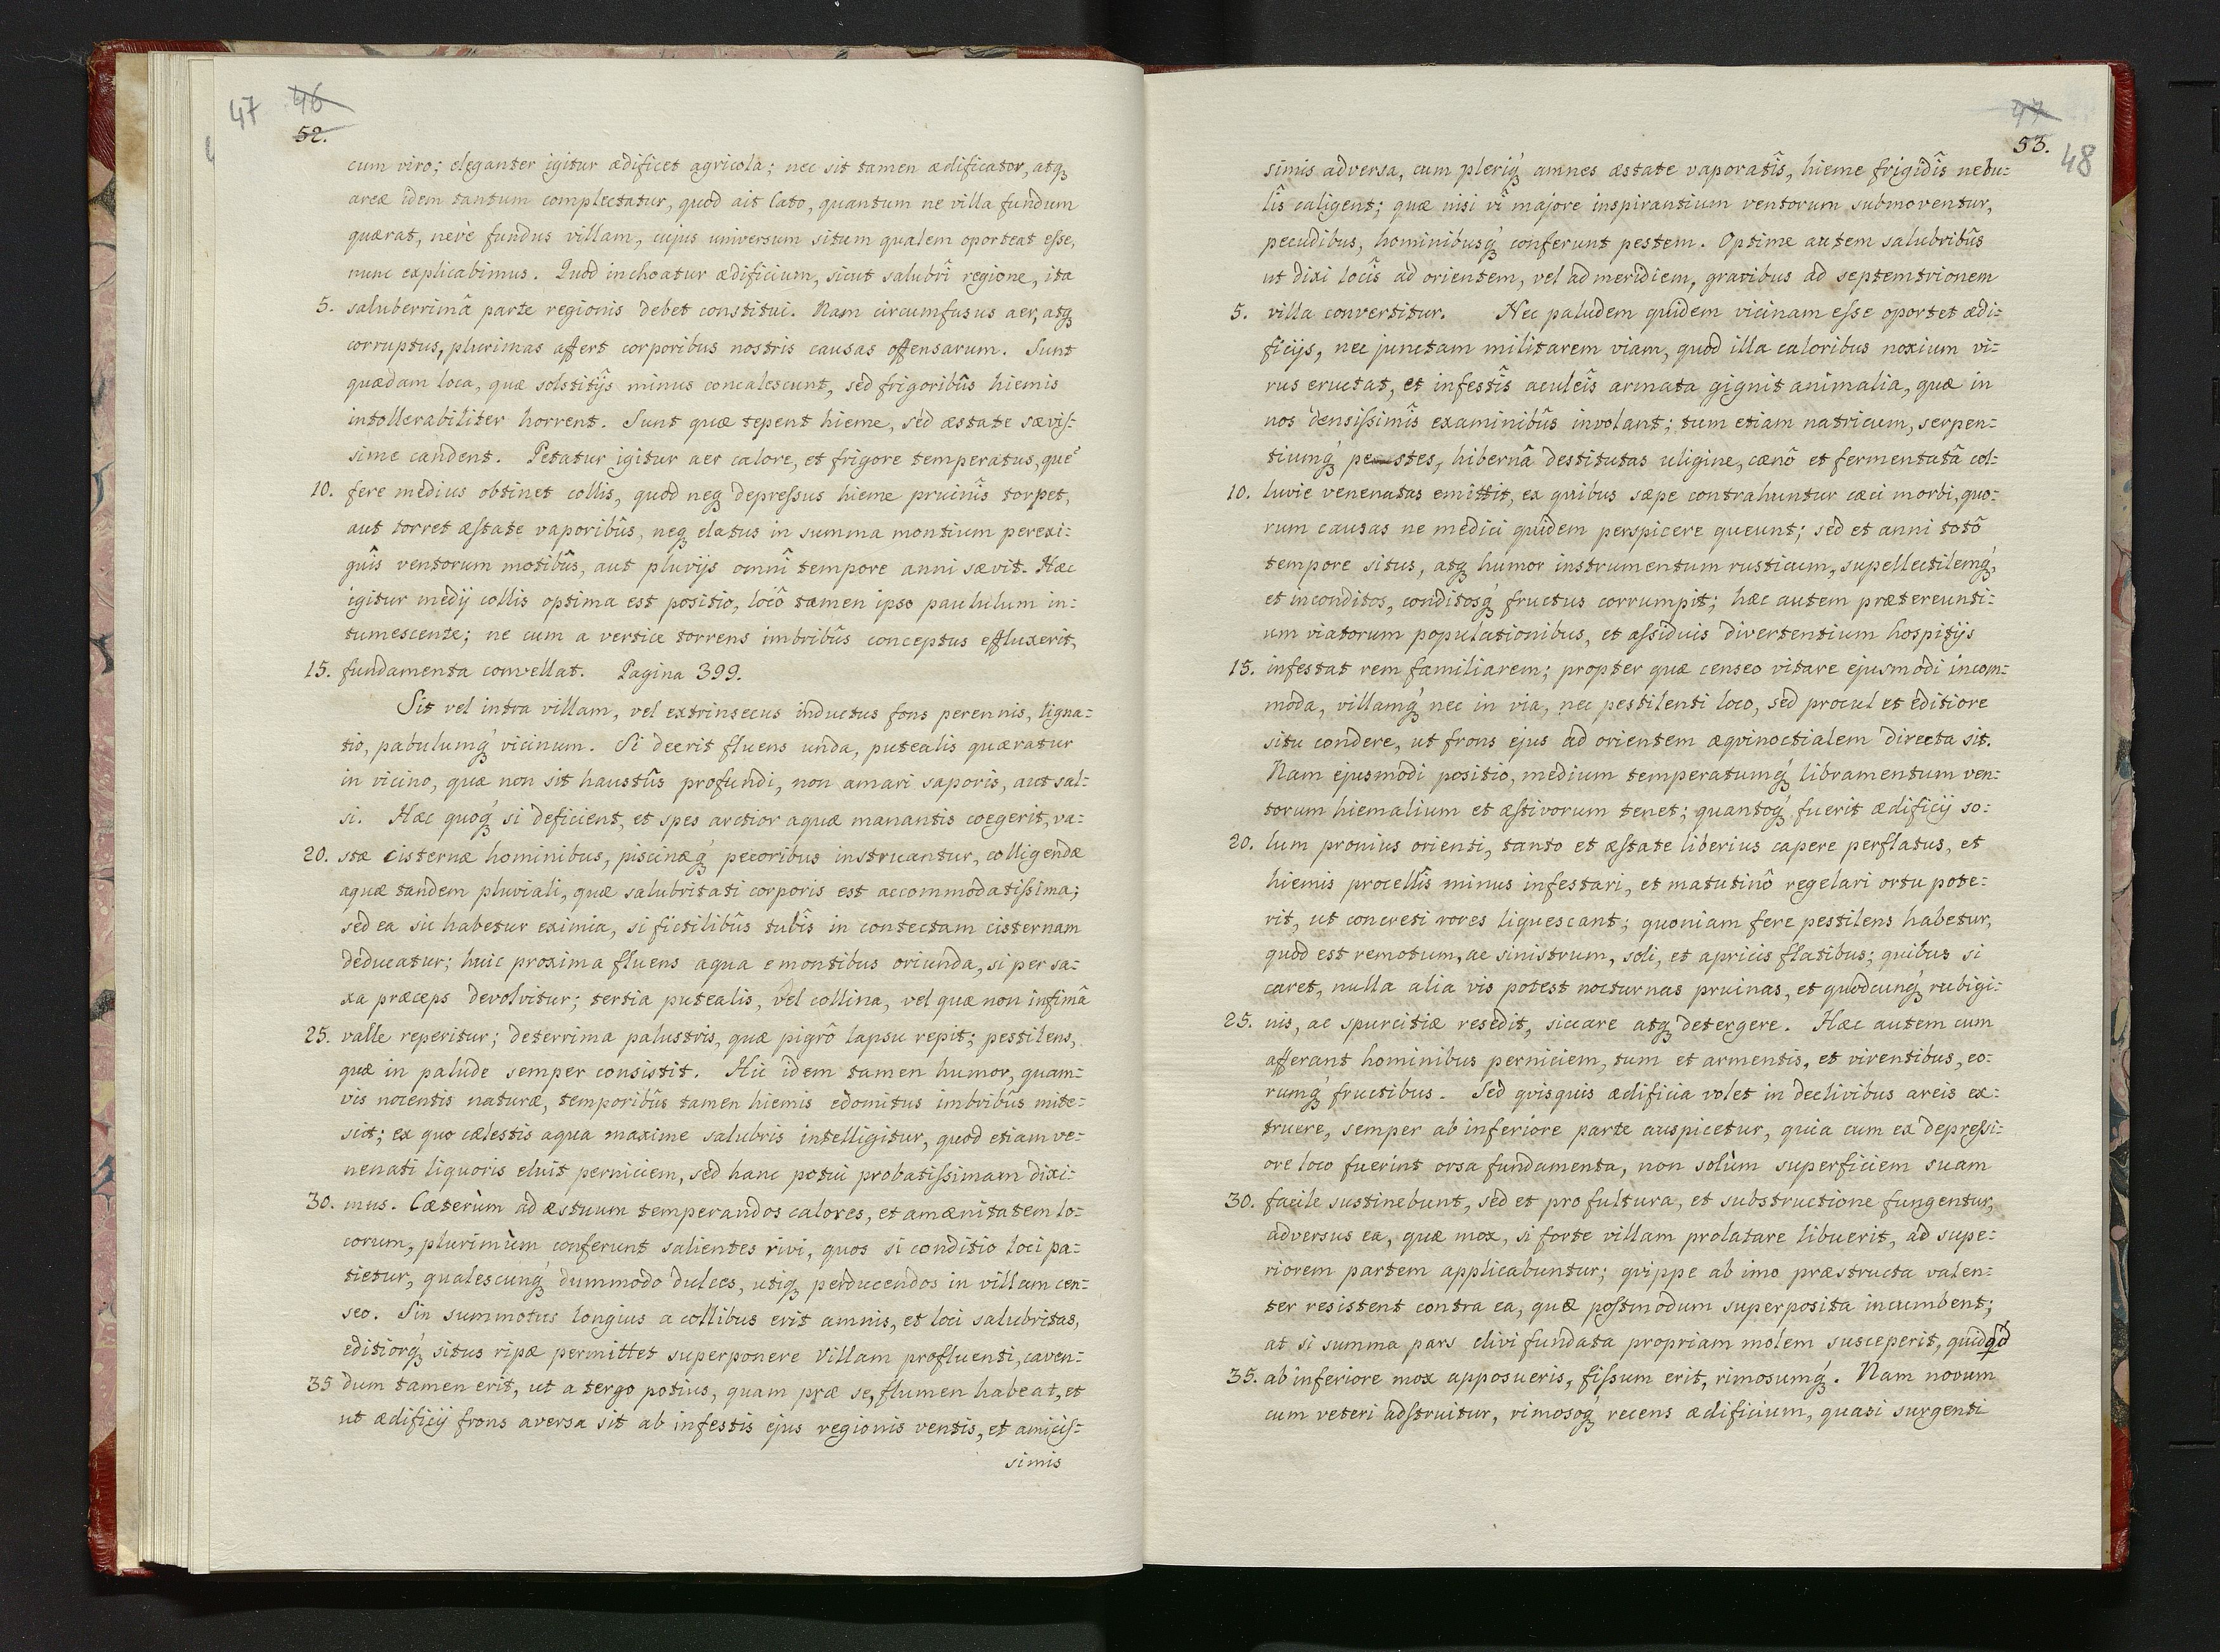 47 46
52.
cum viro; eleganter igitur ædificet agricola; nec sit tamen ædificator, atq
areæ idem tantum complectatur, quod ait Cato, quantum ne villa fundum
quærat, nevè fundus villam, cujus universum situm qualem oporteat eſse,
nunc explicabimus. Quod inchoatur ædificium, sicut salubrî regione, ita
5. saluberrimâ parte regionis debet constitui. Nam circumfusus aer, atq
corruptus, plurimas affert corporibus nostris causas offensarum. Sunt
quædam loca, quæ solstitijs minus concalescunt, sed frigoribûs hiemis
intollerabiliter horrent. Sunt quæ tepent hieme, sed æstate sæviſ:
sime candent. Petatur igitur aer calore, et frigore temperatus, quē
10. fere medius obtinet collis, quod neq depreſsus hieme pruinîs torpet,
aut torret æſtate vaporibûs, neq elatus in summa montium perexi:
guîs ventorum motibûs, aut pluvijs omnî tempore anni sævit. Hæc
igitur medij collis optima est positio, locô tamen ipso paululum in:
tumescente; ne cum a vertice torrens imbribûs conceptus effluxerit,
15. fundamenta convellat. Pagina 399.
Sit vel intra villam, vel extrinsecus inductus fons perennis, ligna:
tio, pabulumq́ vicinum. Si deerit fluens unda, putealis quæratur
in vicino, quæ non sit haustûs profundi, non amari saporis, aut sal:
si. Hæc quoq́ si deficient, et spes arctior aquæ manantis coegerit, va:
20. stæ cisternæ hominibus, piscinæq́ pecoribus instruantur, colligendæ
aquæ tandem pluviali, quæ salubritati corporis est accommodatiſsima;
sed ea sic habetur eximia, si fictilibûs tubîs in contectam cisternam
deducatur; huic proxima fluens aqua e montibus oriunda, si per sa:
xa præceps devolvitur; tertia putealis, vel collina, vel quæ non infimâ
25. valle reperitur; deterrima palustris, quæ pigrô lapsu repit; pestilens,
quæ in palude semper consistit. Hic idem tamen humor, quam:
vis nocentis naturæ, temporibûs tamen hiemis edomitus imbribûs mite:
scit; ex quo cælestis aqua maxime salubris intelligitur, quod etiam ve:
nenati liquoris eluit perniciem, sed hanc potui probatiſsimam dixi:
30. mus. Cæterùm ad æstuum temperandos calores, et amænitatem lo:
corum, plurimùm conferunt salientes rivi, quos si conditio loci pa:
tietur, qualescunq́ dummodo dulces, utiq perducendos in villam cen:
seo. Sin summotus longius a collibus erit amnis, et loci salubritas,
editiorq́ situs ripæ permittet superponere villam profluenti, caven:
35 dum tamen erit, ut a tergo potius, quam præ se, flumen habeat, et
ut ædificij frons aversa sit ab infestis ejus regionis ventis, et amiciſ:
simis
47
53.
48
simis adversa, cum pleriq́ amnes æstate vaporatîs, hieme frigidîs nebu:
lîs caligent; quæ nisi vî majore inspirantium ventorum submoventur,
pecudibus, hominibusq́ conferunt pestem. Optime autem salubribûs
ut dixi locîs ad orientem, vel ad meridiem, gravibus ad septemtrionem
5. villa convertitur. Nec paludem quidem vicinam eſse oportet ædi:
ficijs, nec junctam militarem viam, quod illa caloribus noxium vi:
rus eructat, et infestîs aculeîs armata gignit animalia, quæ in
nos densiſsimîs examinibûs involant; tum etiam natricum, serpen:
tiumq́ pestes, hibernâ destitutas uligine, cænô et fermentatâ col:
10. luvie venenatas emittit, ex quibus sæpe contrahuntur cæci morbi, quo:
rum causas ne medici quidem perspicere queunt; sed et anni totô
tempore situs, atq humor instrumentum rusticum, supellectilemq́,
et inconditos, conditosq́ fructus corrumpit; hæc autem prætereunti:
um viatorum populationibus, et aſsiduis divertentium hospitijs
15. infestat rem familiarem; propter quæ censeo vitare ejusmodi incom:
moda, villamq́ nec in via, nec pestilenti loco, sed procul et editiore
situ condere, ut frons ejus ad orientem æqvinoctialem directa sit.
Nam ejusmodi positio, medium temperatumq́ libramentum ven:
torum hiemalium et æſtivorum tenet; quantoq́ fuerit ædificij so:
20. lum pronius orienti, tanto et æſtate liberius capere perflatus, et
hiemis procellîs minus infestari, et matutinô regelari ortu pote:
rit, ut concreti rores liquescant; quoniam fere pestilens habetur,
quod est remotum, ac sinistrum, soli, et apricis flatibus; quibus si
caret, nulla alia vis potest nocturnas pruinas, et quodcunq́ rubigi:
25. nis, ac spurcitiæ resedit, siccare atq detergere. Hæc autem cum
afferant hominibus perniciem, tum et armentis, et virentibus, eo:
rumq́ fructibus. Sed qvisquis ædificia volet in declivibus areis ex:
truere, semper ab inferiore parte auspicetur, quia cum ex depreſsi:
ore loco fuerint orsa fundamenta, non solùm superficiem suam
30. facile sustinebunt, sed et pro fultura, et substructione fungentur,
adversus ea, quæ mox, si forte villam prolatare libuerit, ad supe:
riorem partem applicabuntur; qvippe ab imo præstructa valen:
ter resistent contra ea, quæ poſtmodum superposita incumbent;
at si summa pars clivi fundata propriam molem susceperit, quidqd
35. ab inferiore mox apposueris, fiſsum erit, rimosumq́. Nam novum
cum veteri adſtruitur, rimosoq́ recens ædificium, quasi surgenti